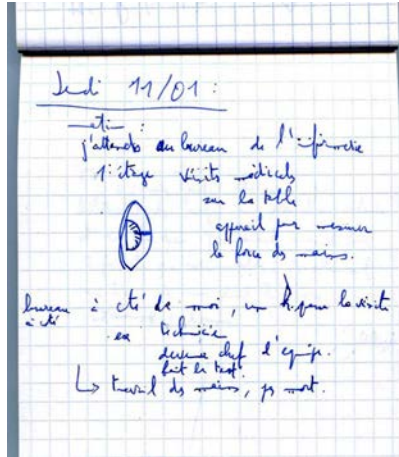 Jeudi 11/01 :
matin :
j'attends au bureau de l'infirmerie
1° étage visites médicales
sur la table
appareil pour mesurer
la force des mains.
bureau à côté de moi, un h. passe la visite
à côté
ex technicien
devenu chef d'équipe.
fait le test.
↳ travail des mains, pas mort.